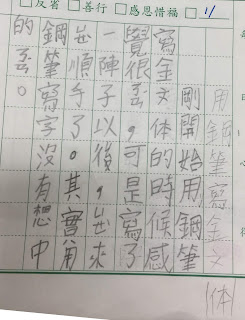 □反省 □善行 □感恩惜福 □ 1/
用鋼筆寫金文
剛開始用鋼筆
寫金文体的時候感
覺很丟，可是寫了
一陣子以後，出來
出順手了。其實角
鋼筆寫字沒有想中
的丟。
体